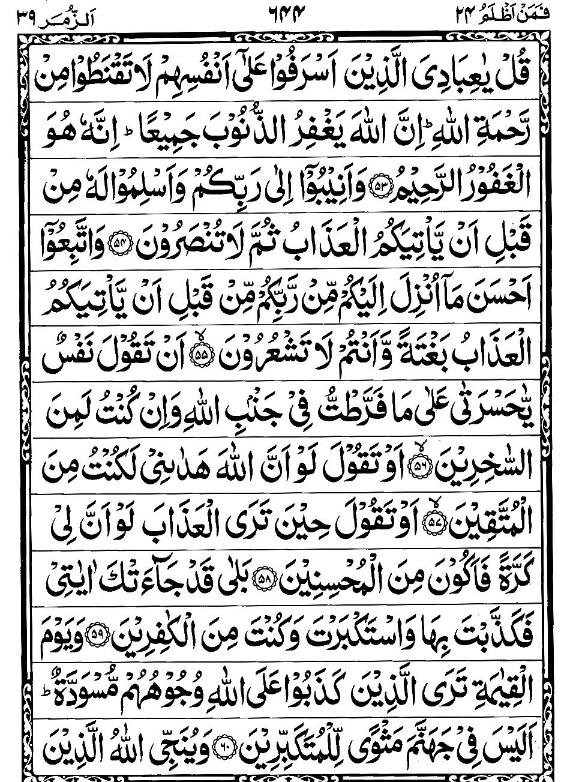 فمن اظلم ۲۴ ٦٤٤ الزمر ۳۹
قُلْ يٰعِبَادِىَ الَّذِيْنَ اَسْرَفُوْا عَلٰٓى اَنْفُسِهِمْ لَا تَقْنَطُوْا مِنْ
رَّحْمَةِ اللّٰهِ ؕ اِنَّ اللّٰهَ يَغْفِرُ الذُّنُوْبَ جَمِيْعًا ؕ اِنَّهٗ هُوَ
الْغَفُوْرُ الرَّحِيْمُ ﴿۵۳﴾ وَاَنِيْبُوْۤا اِلٰى رَبِّكُمْ وَاَسْلِمُوْا لَهٗ مِنْ
قَبْلِ اَنْ يَّاْتِيَكُمُ الْعَذَابُ ثُمَّ لَا تُنْصَرُوْنَ ﴿۵۴﴾ وَاتَّبِعُوْۤا
اَحْسَنَ مَاۤ اُنْزِلَ اِلَيْكُمْ مِّنْ رَّبِّكُمْ مِّنْ قَبْلِ اَنْ يَّاْتِيَكُمُ
الْعَذَابُ بَغْتَةً وَّاَنْتُمْ لَا تَشْعُرُوْنَ ۙ﴿۵۵﴾ اَنْ تَقُوْلَ نَفْسٌ
يّٰحَسْرَتٰى عَلٰى مَا فَرَّطْتُّ فِىْ جَنْۢبِ اللّٰهِ وَاِنْ كُنْتُ لَمِنَ
السّٰخِرِيْنَ ۙ﴿۵۶﴾ اَوْ تَقُوْلَ لَوْ اَنَّ اللّٰهَ هَدٰٮنِىْ لَكُنْتُ مِنَ
الْمُتَّقِيْنَ ۙ﴿۵۷﴾ اَوْ تَقُوْلَ حِيْنَ تَرَى الْعَذَابَ لَوْ اَنَّ لِىْ
كَرَّةً فَاَكُوْنَ مِنَ الْمُحْسِنِيْنَ ﴿۵۸﴾ بَلٰى قَدْ جَآءَتْكَ اٰيٰتِىْ
فَكَذَّبْتَ بِهَا وَاسْتَكْبَرْتَ وَكُنْتَ مِنَ الْكٰفِرِيْنَ ﴿۵۹﴾ وَيَوْمَ
الْقِيٰمَةِ تَرَى الَّذِيْنَ كَذَبُوْا عَلَى اللّٰهِ وُجُوْهُهُمْ مُّسْوَدَّةٌ ؕ
اَلَيْسَ فِىْ جَهَنَّمَ مَثْوًى لِّلْمُتَكَبِّرِيْنَ ﴿۶۰﴾ وَيُنَجِّى اللّٰهُ الَّذِيْنَ